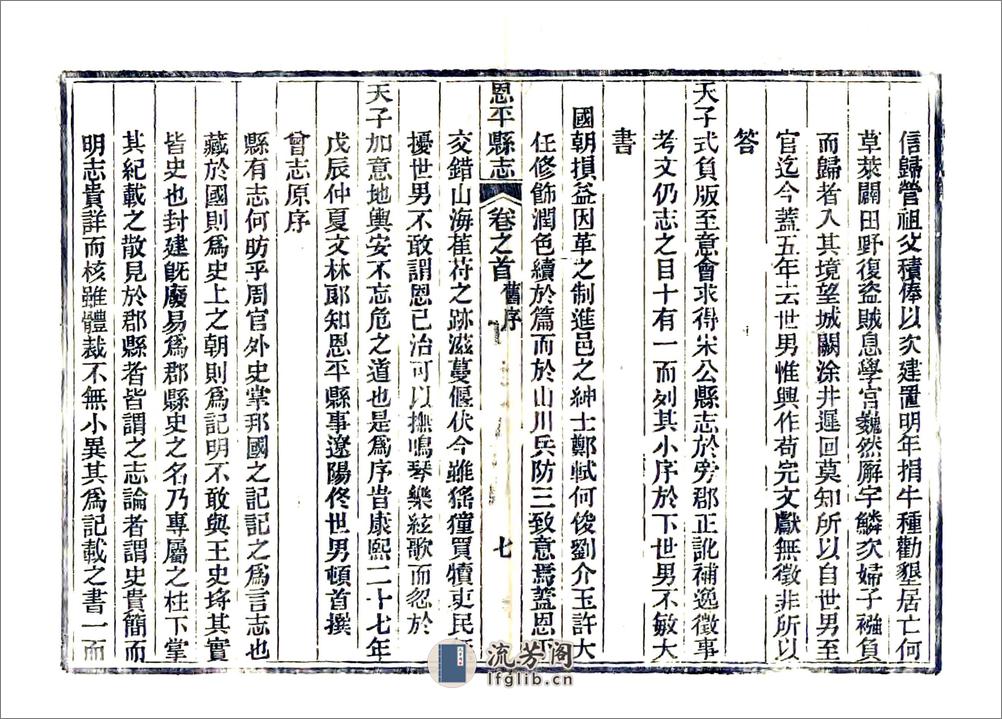 信歸營祖父積俸以次建置明年捐牛種勸墾居亡何
草萊闢田野復盜賊息學宮巍然廨宇鱗次婦子襁負
而歸者入其境望城闕涂井遲回莫知所以自世男至
官迄今蓋五年云世男惟興作苟完文獻無徵非所以
答
天子式負版至意會求得宋公縣志於旁郡正訛補逸徵事
考文仍志之目十有一而列其小序於下世男不敏大
書
國朝損益因革之制進邑之紳士鄭軾何俊劉介玉許大
任修飾潤色續於篇而於山川兵防三致意焉蓋恩平
恩平縣志 卷之首 舊序 七
交錯山海萑苻之跡滋蔓偃伏今雖猺獞買犢吏民
擾世男不敢謂恩已治可以撫鳴琴樂絃歌而忽於
天子加意地輿安不忘危之道也是爲序旹康熙二十七年
戊辰仲夏文林郞知恩平縣事遼陽佟世男頓首撰
曾志原序
縣有志何昉乎周官外史掌邦國之記記之爲言志也
藏於國則爲史上之朝則爲記明不敢與王史埒其實
皆史也封建旣廢易爲郡縣史之名乃專屬之柱下掌
其紀載之散見於郡縣者皆謂之志論者謂史貴簡而
明志貴詳而核雖體裁不無小異其爲記載之書一而
流芳阁
lfglib.cn